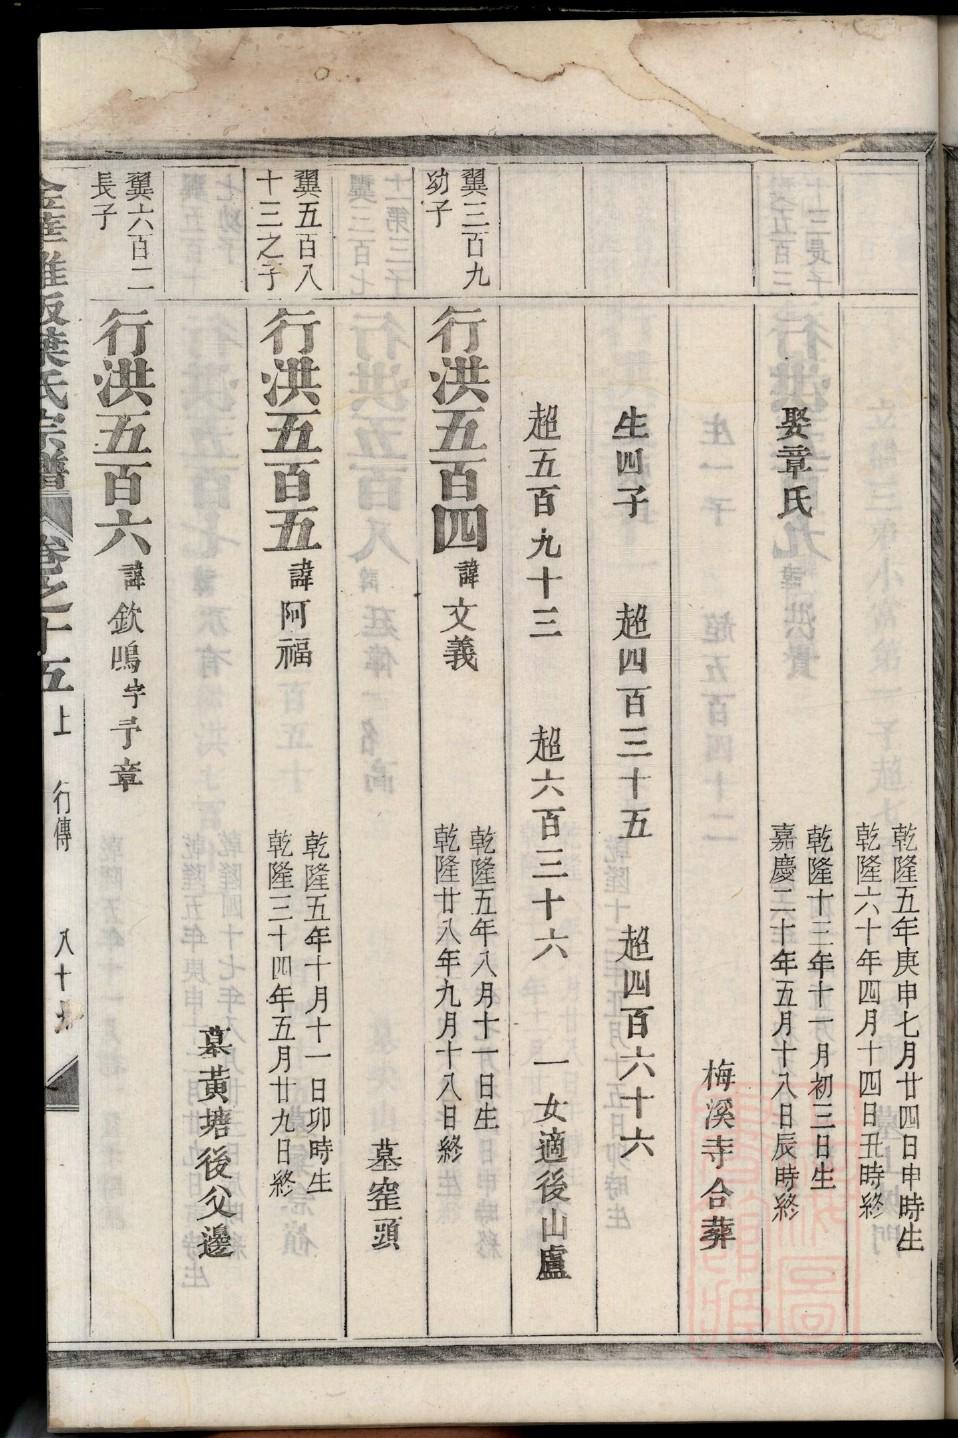 乾隆五年庚申七月廿四日申時生
乾隆六十年四月十四日丑時終
娶章氏
乾隆十三年十一月初三日生
嘉慶二十年五月十八日辰時終
梅溪寺合葬
生四子 超四百三十五 超四百六十六
超五百九十三 超六百三十六 一女適後山盧
翼三百九
幼子
行洪五百四 諱文義
乾隆五年八月十一日生
乾隆廿八年九月十八日終
墓窐頭
翼五百八
十三之子
行洪五百五 諱阿福
乾隆五年十月十一日卯時生
乾隆三十四年五月廿九日終
墓黃塘後父邊
翼六百二
長子
行洪五百六 諱欽鳴字予章
葉氏宗譜 卷之十五 上 行傳 八十